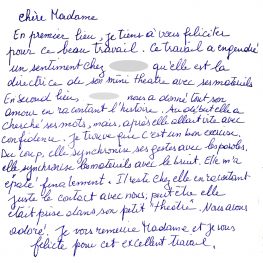 chère Madame
En premier lieu, je tiens à vous féliciter
pour ce beau travail. Ce travail a engendré
un sentiment chez qu'elle est la
directrice de soi mini theatre avec ses materiels
En second lieu, nous a donné tout son
amour en racontant l'histoire. Au début elle a
cherché ses mots, mais, après elle allait vite avec
confidence. Je trouve que c'est un bon excuse.
Du coup, elle synchronise ses gestes avec les paroles.
elle synchronise les materiels avec le bruit. Elle m'a
épaté finalement. Il reste chez elle en racontant
juste le contact avec nous, peut être elle
était prise dans son petit "théatre". Nous avons
adoré. Je vous remercie Madame et je vous
felicite pour cet excellent travail.